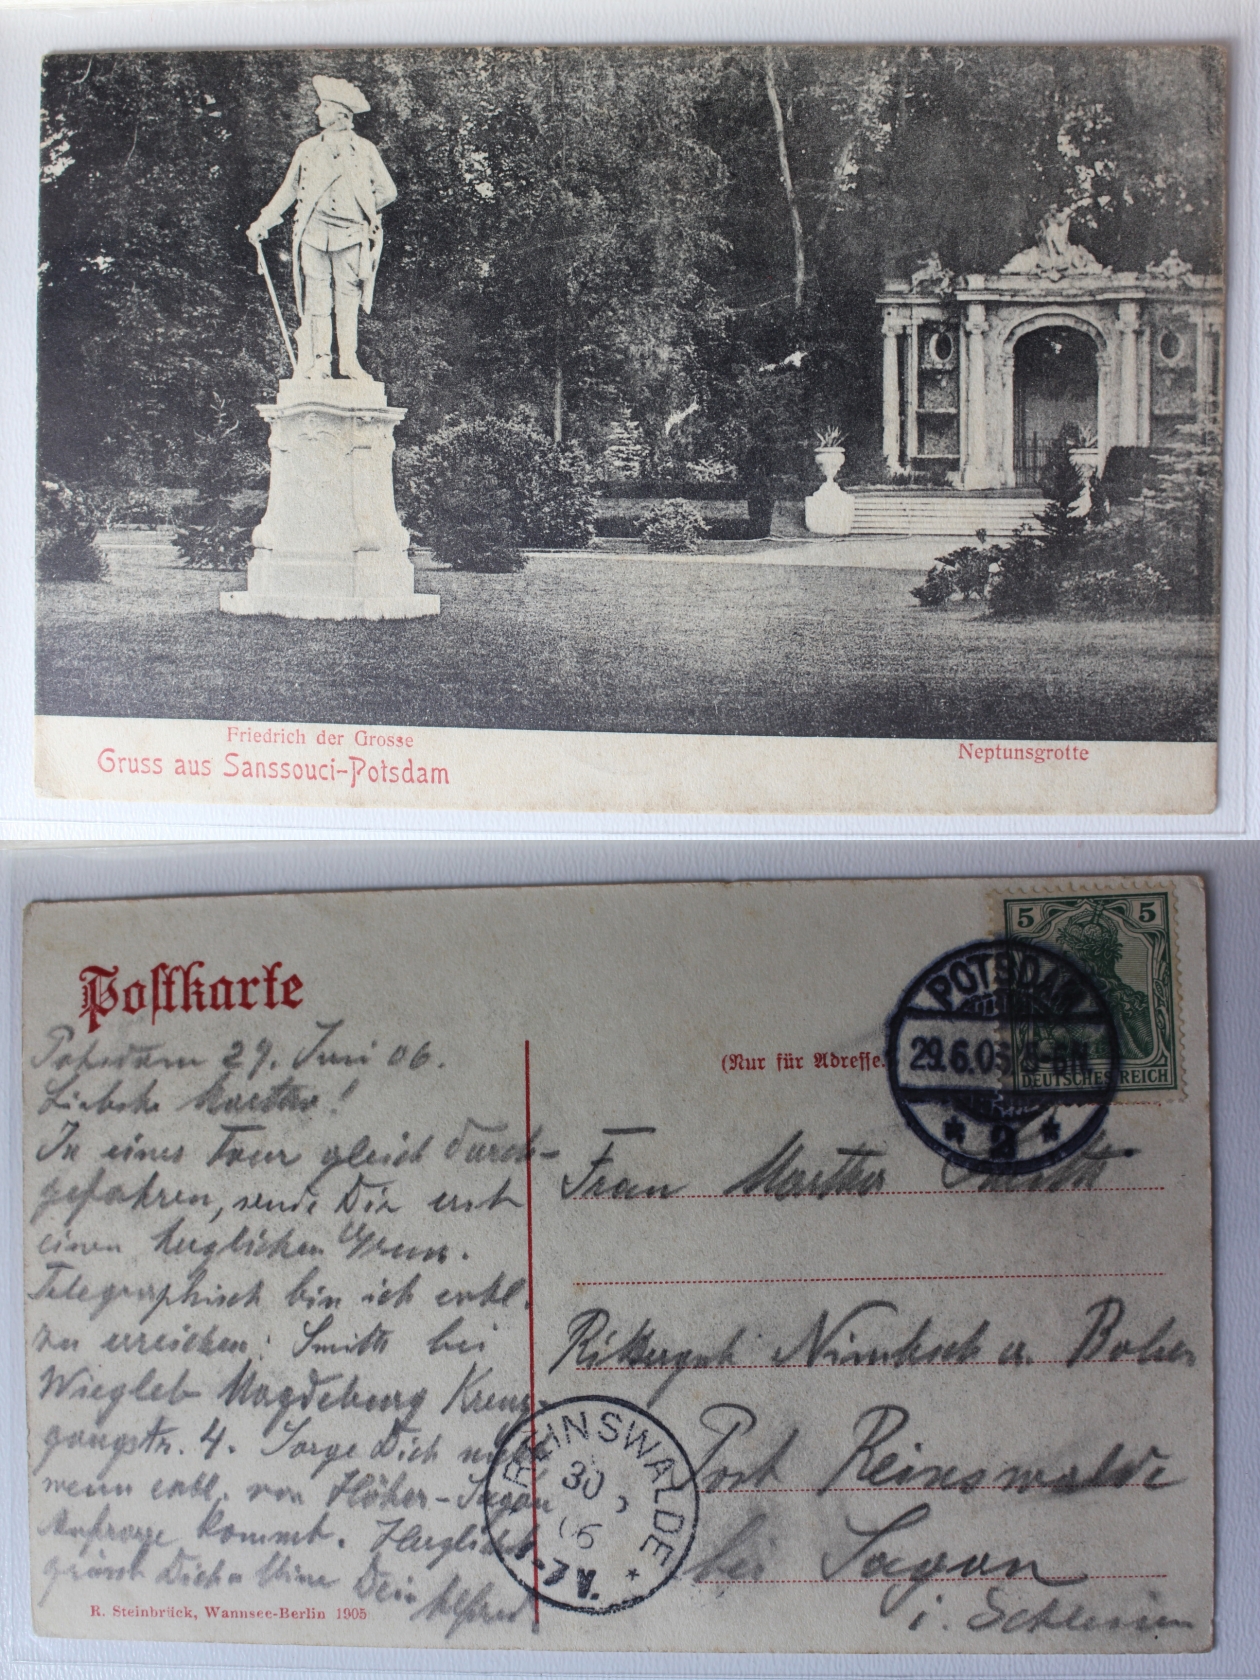 Friedrich der Grosse
Gruss aus Sanssouci-Potsdam
Neptunsgrotte
Postkarte
(Nur für Adresse.
5 5
DEUTSCHES REICH
POTSDAM
29.6.06 5-6N.
* 2 *
Potsdam 29. Juni 06.
Liebste Martha!
In einer Tour gleich durch-
gefahren, sende Dir erst
einen herzlichen Gruss.
Telegraphisch bin ich evtl.
zu erreichen: Smith bei
Wiegleb Magdeburg Kreuz-
gangstr. 4. Sorge Dich nicht
wenn evtl. von Höher-Sagan
Anfrage kommt. Herzlichst
grüsst Dich Dein Alfred
Frau Martha Smith
Rittergut Nimbsch a. Bober
Post Reinswalde
bei Sagan
i. Schlesien
REINSWALDE
30
06
R. Steinbrück, Wannsee-Berlin 1905